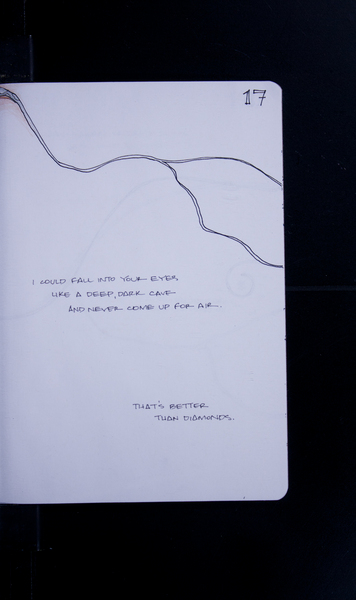 17
I COULD FALL INTO YOUR EYES
LIKE A DEEP, DARK CAVE
AND NEVER COME UP FOR AIR.
THAT'S BETTER
THAN DIAMONDS.